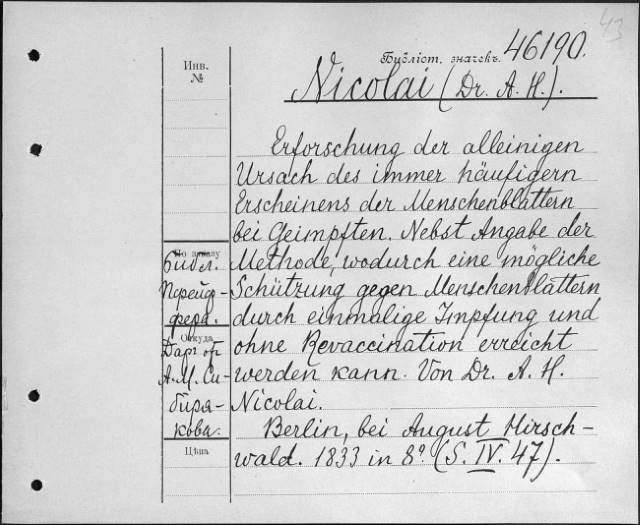 43
Библіот. значекъ. 46190.
Инв.
№
Nicolai (Dr. A. H.).
Erforschung der alleinigen
Ursach des immer häufigern
Erscheinens der Menschenblattern
bei Geimpften. Nebst Angabe der
Methode, wodurch eine mögliche
Schützung gegen Menschenblattern
durch einmalige Impfung und
ohne Revaccination erreicht
werden kann. Von Dr. A. H.
Nicolai.
Berlin, bei August Hirsch-
wald. 1833 in 8º. (S. IV. 47).
По
библ.
Пфейф-
фера.
Откуда
Даръ от
А. М. Си-
биря-
кова.
Цѣна